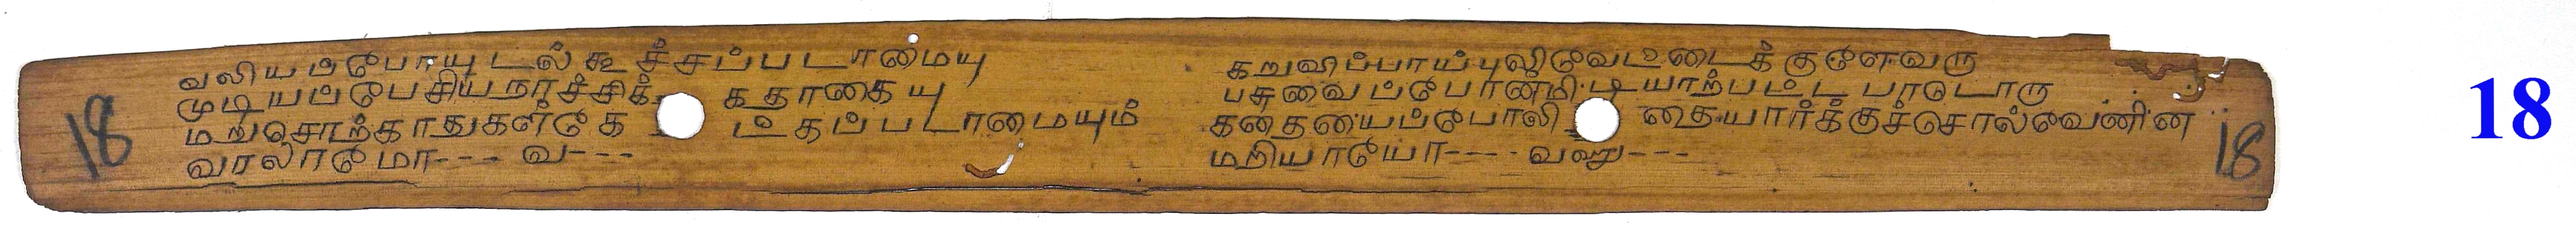 18
வலியப்போயுடல்கூச்சப்படாமையு
முடியப்பேசியநாச்சிக் கதாகையு
மறுசொற்காதுகள்கே ட்கப்படாமையும்
வரலாமோ--- வ---
கறுவிப்பாய்புலிவேட்டைக்குளேவரு
பசுவைப்போன்மிடியாற்பட்டபாடாரு
கதையைப்போலி தையார்க்குச்சொல்வேனின
மறியாயோ---- வஹு---
18
18